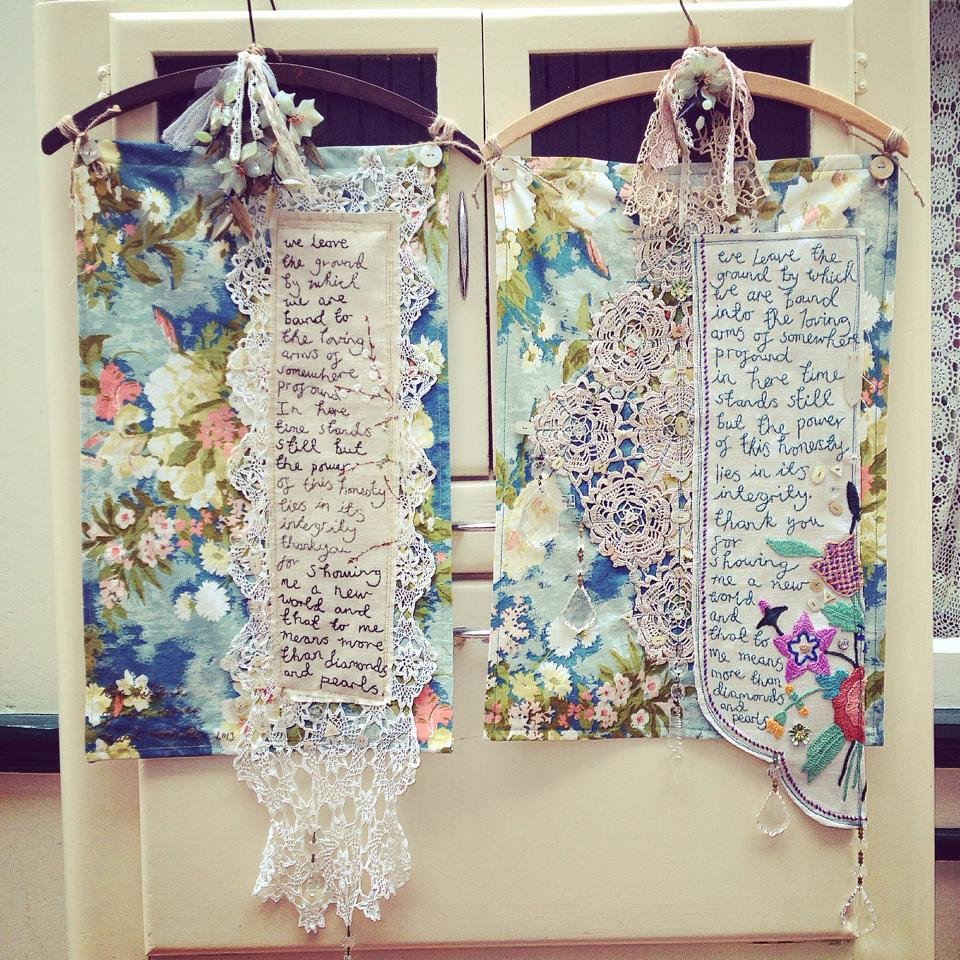 we leave
the ground
by which
we are
band to
the loving
arms of
somewhere
profound
In here
time stands
still but
the power
of this honesty
lies in its
integrity
thankyou
for showing
me a new
world and
that to me
means more
than diamonds
and pearls
2013
we leave the
ground by which
we are found
into the loving
arms of somewhere
profound
in here time
stands still
but the power
of this honesty
lies in its
integrity.
thank you
for
showing
me a new
world
and
that to
me means
more than
diamonds
and
pearls